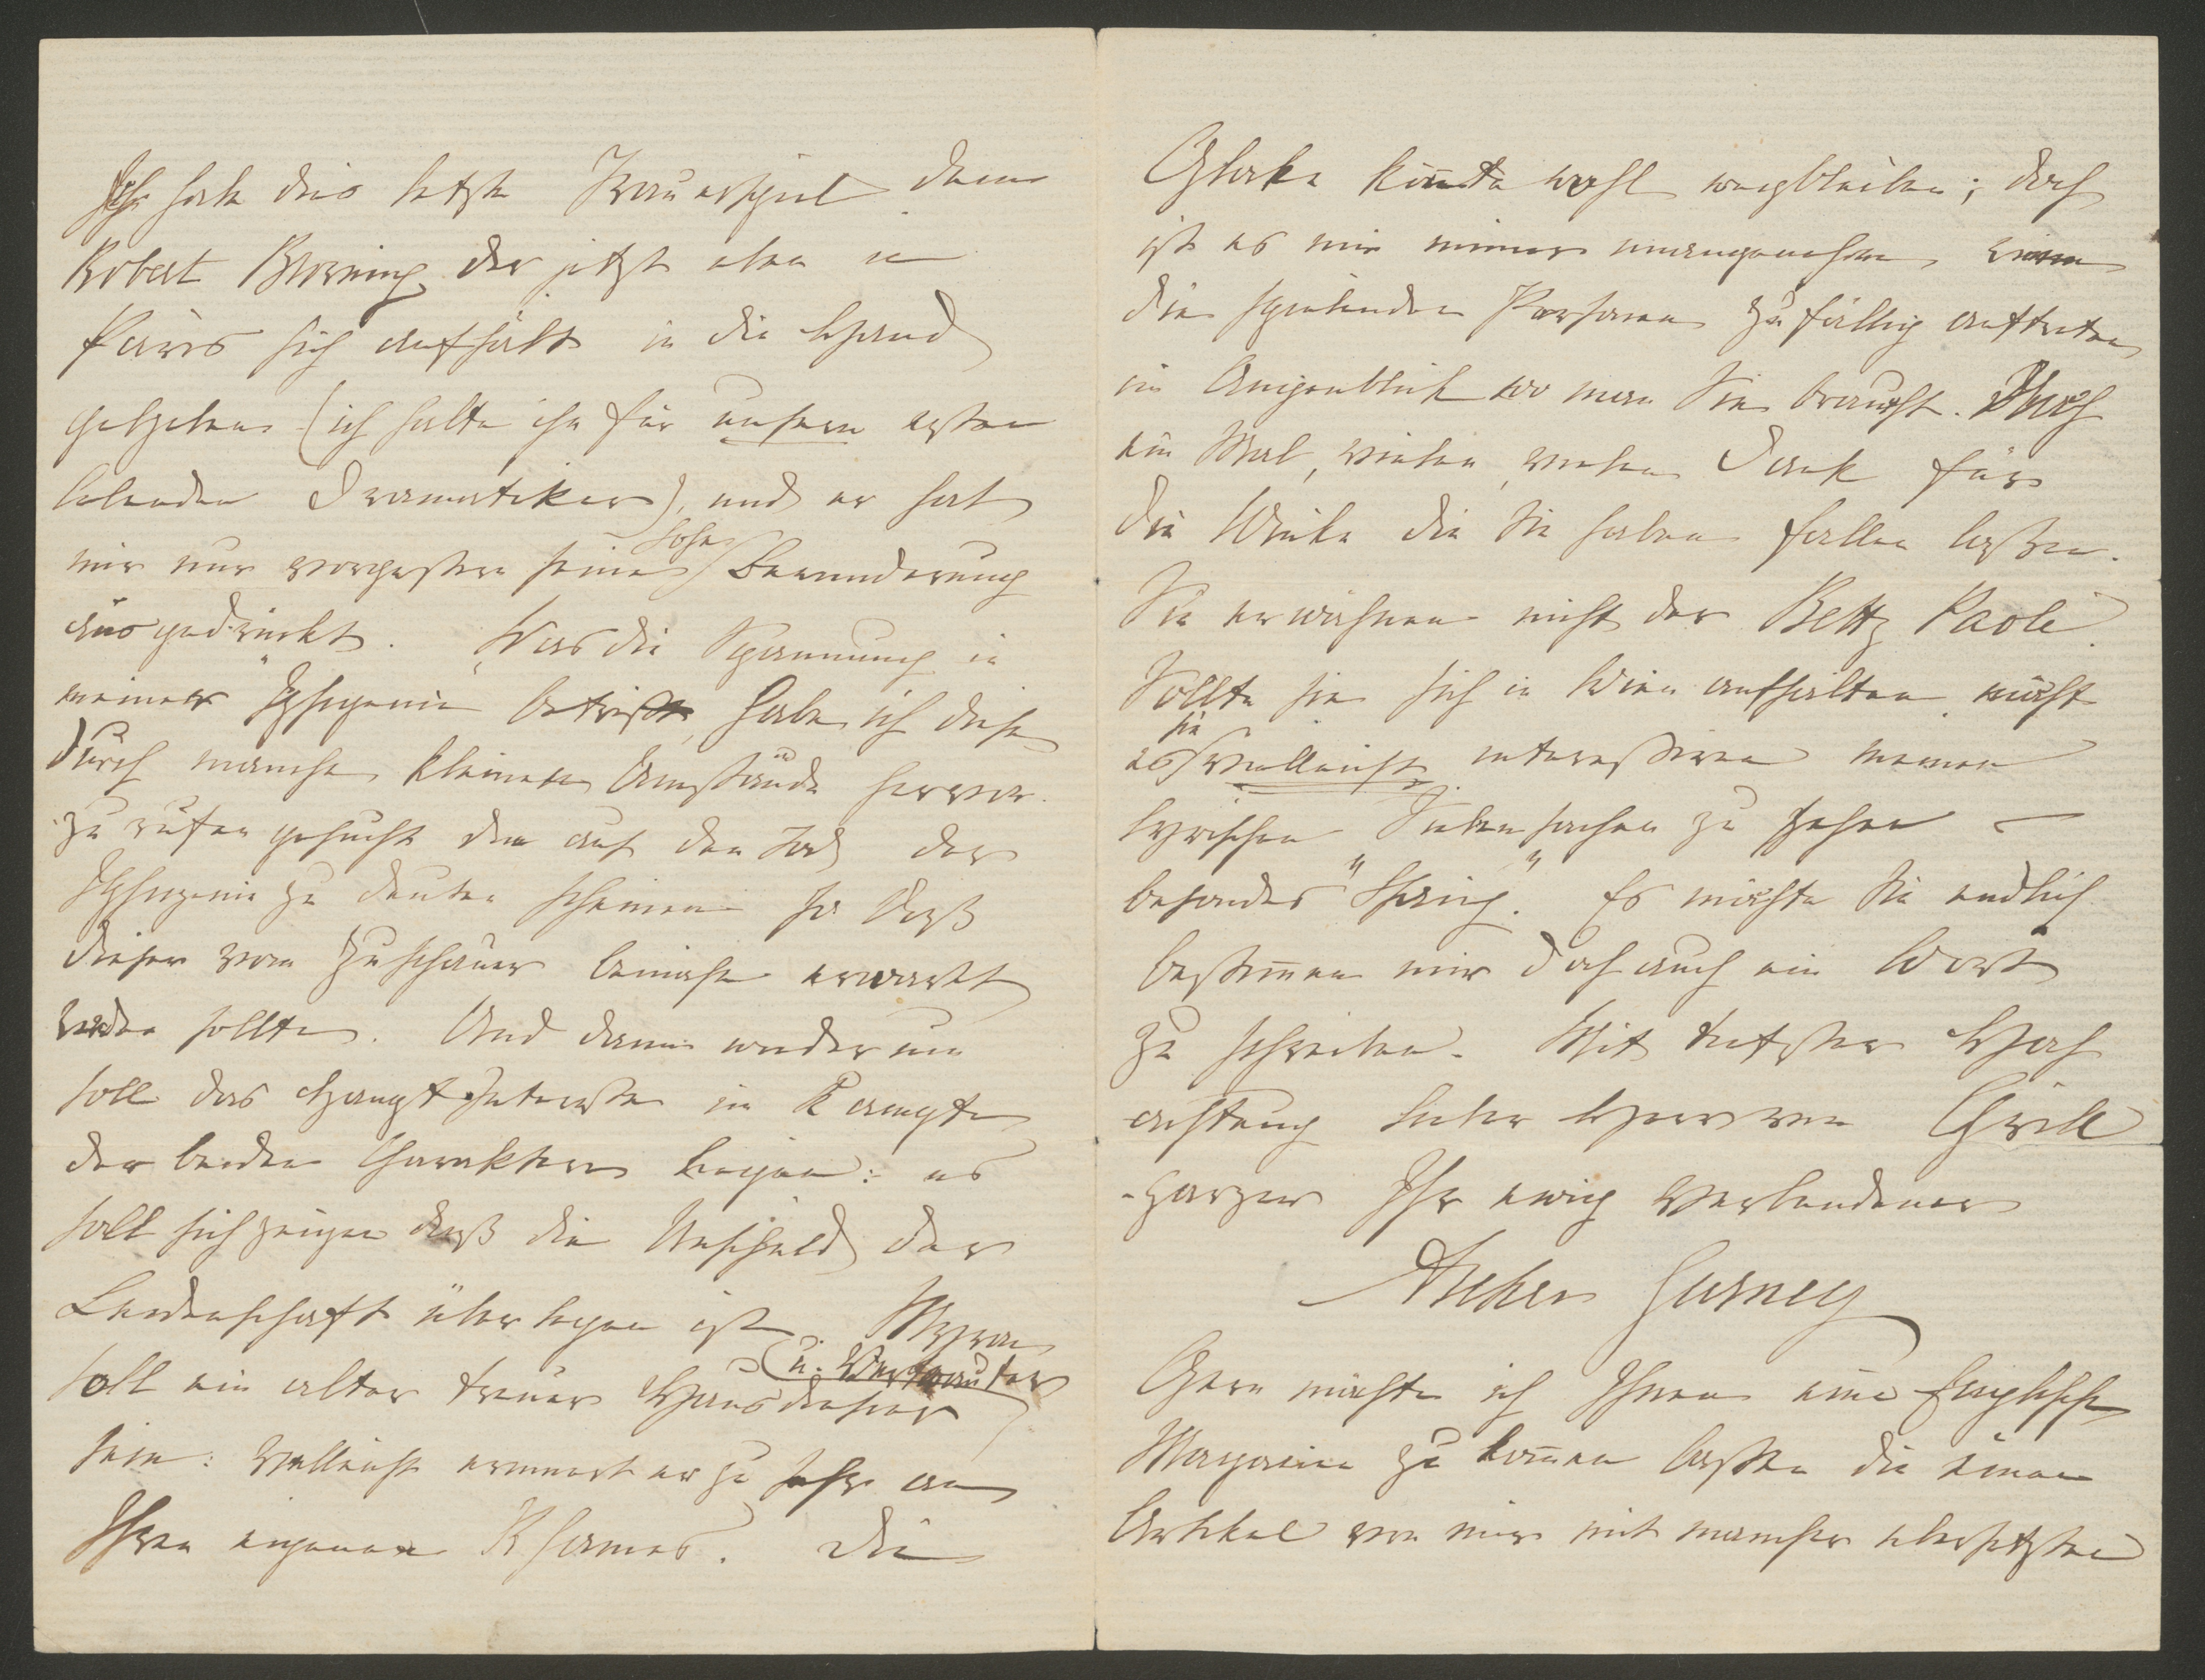 Ich habe dies letzte Trauerspiel dem
Robert Browning der jetzt eben in
Paris sich aufhält in die Hand
gegeben (ich halte ihn für unsern ersten
lebenden Dramatiker), und er hat
mir nur vorgestern seine hohe Bewunderung
ausgedrückt. Was die Spannung in
meiner "Iphigenie" betrifft, habe ich diese
durch manche kleinen Umstände hervor-
zu rufen gesucht die auf den Tod der
Iphigenie zu deuten scheinen so daß
dieser vom Zuschauer beinahe erwartet
werden sollte. Und dann wiederum
soll das Hauptinteresse im Kampfe
der beiden Charaktere liegen: es
soll sich zeigen daß die Unschuld der
Leidenschaft überlegen ist. Myron
soll ein alter treuer Hausdiener (u. Vertrauter)
sein: vielleicht erinnert er zu sehr an
Ihren eigenen Rhamnes. Die
Glocke könnte wohl wegbleiben; doch
ist es mir immer unangenehm, wenn
die spielenden Personen zufällig auftreten
im Augenblick wo man Sie braucht. Noch
ein Mal, vielen, vielen Dank für
die Winke die Sie haben fallen lassen.
Sie erwähnen nicht der Betty Paoli.
Sollte sie sich in Wien aufhalten, möcht
es sie vielleicht interessiren meine
lyrischen Siebensachen zu sehen –
besonders "Spring". Es möchte Sie endlich
bestimmen mir doch auch ein Wort
zu schreiben. Mit tiefster Hoch
achtung lieber Herr von Grill
-parzer Ihr ewig Verbundener
Archer Gurney
Gern möchte ich Ihnen eine Englische
Magazine zu kommen lassen die einen
Artikel von mir mit mancher übersetzten